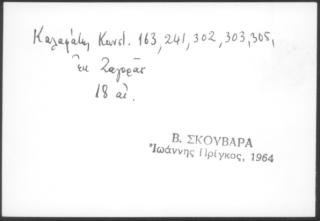 Καλαφάτης Κωνστ. 163, 241, 302, 303, 305,
ἐκ Ζαγορᾶς
18 αἰ.
Β. ΣΚΟΥΒΑΡΑ
Ἰωάννης Πρίγκος, 1964